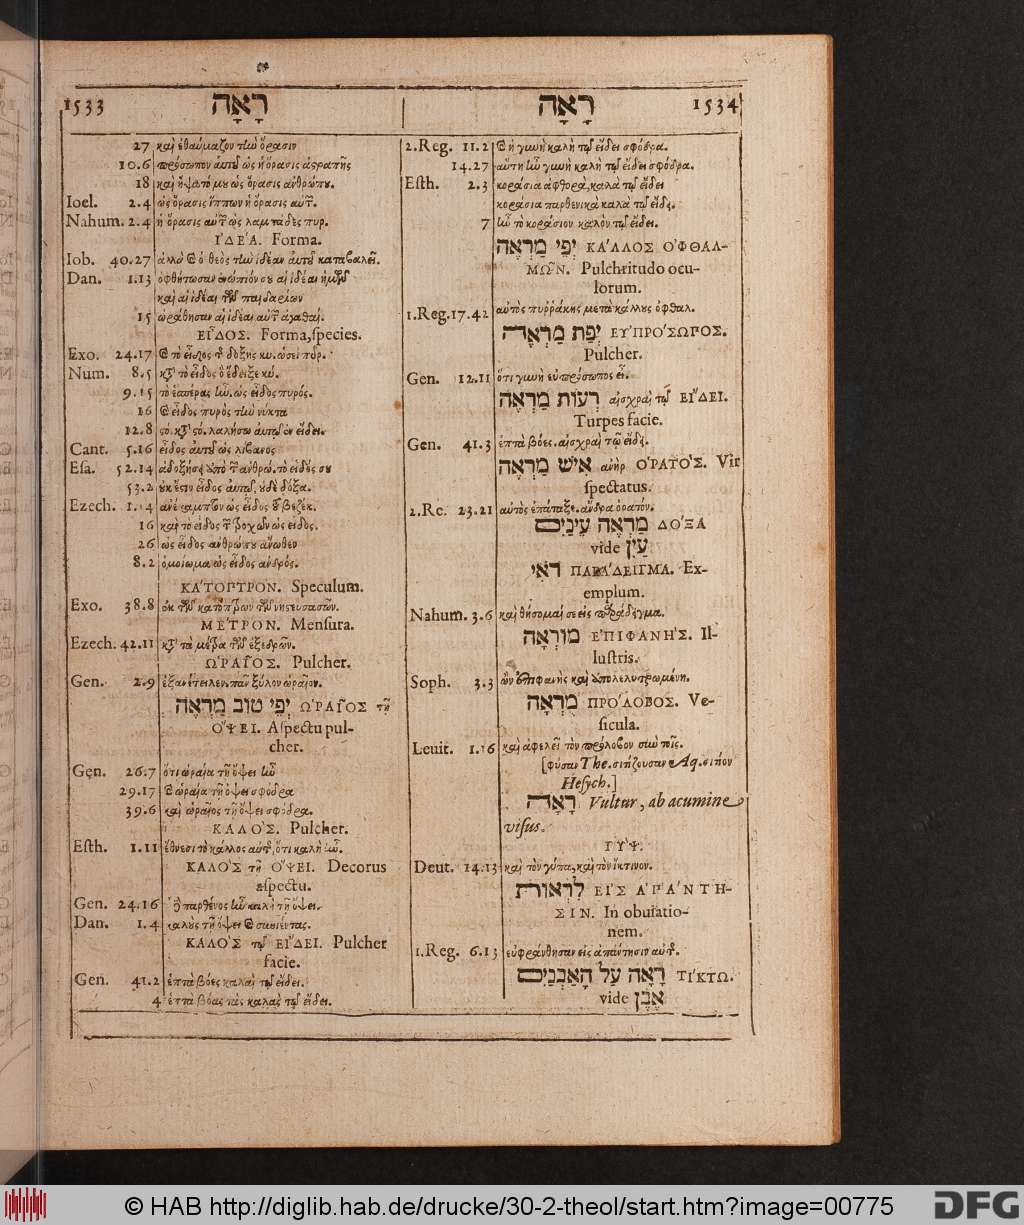 1533 רָאָה
27 καὶ ἐθαύμαζον τὴν ὅρασιν
10.6 πρόσωπον αὐτοῦ ὡς ἡ ὅρασις ἀστραπῆς
18 καὶ ἥψατό μου ὡς ὅρασις ἀνθρώπου.
Ioel. 2.4 ὡς ὅρασις ἵππων ἡ ὅρασις αὐτῶν.
Nahum. 2.4 ἡ ὅρασις αὐτῶν ὡς λαμπάδες πυρ.
ἸΔΕΆ. Forma.
Iob. 40.27 ἀλλὰ καὶ ὁ θεὸς τὴν ἰδέαν αὐτοῦ καταβαλεῖ.
Dan. 1.13 ὀφθήτωσαν ἐνώπιόν σου αἱ ἰδέαι ἡμῶν
καὶ αἱ ἰδέαι τῶν παιδαρίων
15 ὡράθησαν αἱ ἰδέαι αὐτῶν ἀγαθαί.
ΕΙ͂ΔΟΣ. Forma, species.
Exo. 24.17 καὶ τὸ εἶδος τῆς δόξης κυ. ὡσεὶ πῦρ.
Num. 8.5 κατὰ τὸ εἶδος ὃ ἔδειξε κύ.
9.15 τὸ ἑσπέρας ἦν. ὡς εἶδος πυρός.
16 καὶ εἶδος πυρὸς τὴν νύκτα
12.8 στό. κατὰ στό. λαλήσω αὐτῷ ἐν εἴδει.
Cant. 5.16 εἶδος αὐτοῦ ὡς λίβανος
Esa. 52.14 ἀδοξήσει ἀπὸ τῶν ἀνθρώ. τὸ εἶδός σου
53.2 οὐκ ἔστιν εἶδος αὐτῷ, οὐδὲ δόξα.
Ezech. 1.14 ἀνέκαμπτον ὡς εἶδος τοῦ βεζέκ.
16 καὶ τὸ εἶδος τῶν τροχῶν ὡς εἶδος.
26 ὡς εἶδος ἀνθρώπου ἄνωθεν
8.2 ὁμοίωμα ὡς εἶδος ἀνδρός.
ΚΑ΄ΤΟΠΤΡΟΝ. Speculum.
Exo. 38.8 ἐκ τῶν κατόπτρων τῶν νηστευσασῶν.
ΜΕ΄ΤΡΟΝ. Mensura.
Ezech. 42.11 κατὰ τὰ μέτρα τῶν ἐξεδρῶν.
ὩΡΑΙ͂ΟΣ. Pulcher.
Gen. 2.9 ἐξανέτειλεν. πᾶν ξύλον ὡραῖον.
יְפֵי טוֹב מַרְאֶה ὩΡΑΙ͂ΟΣ τῇ
ὌΨΕΙ. Aspectu pul-
cher.
Gen. 26.7 ὅτι ὡραία τῇ ὄψει ἦν
29.17 καὶ ὡραία τῇ ὄψει σφόδρα
39.6 καὶ ὡραῖος τῇ ὄψει σφόδρα.
ΚΑΛΟ΄Σ. Pulcher.
Esth. 1.11 ἔθνεσι τὸ κάλλος αὐτῆς, ὅτι καλὴ ἦν.
ΚΑΛΟ΄Σ τῇ ὌΨΕΙ. Decorus
aspectu.
Gen. 24.16 ἡ παρθένος ἦν καλὴ τῇ ὄψει.
Dan. 1.4 καλοὺς τῇ ὄψει καὶ συνιέντας.
ΚΑΛΟ΄Σ τῷ ΕΙ΄ΔΕΙ. Pulcher
facie.
Gen. 41.2 ἑπτὰ βόες καλαὶ τῷ εἴδει.
4 ἑπτὰ βόας τὰς καλὰς τῷ εἴδει.
רָאָה 1534
2.Reg. 11.2 καὶ ἡ γυνὴ καλὴ τῷ εἴδει σφόδρα.
14.27 αὕτη ἦν γυνὴ καλὴ τῷ εἴδει σφόδρα.
Esth. 2.3 κοράσια ἄφθορα, καλὰ τῷ εἴδει
κοράσια παρθενικὰ καλὰ τῷ εἴδει.
7 ἦν τὸ κοράσιον καλὸν τῷ εἴδει.
יְפֵי מַרְאֶה ΚΑ΄ΛΛΟΣ ΟΦΘΑΛ-
ΜΩ͂Ν. Pulchritudo ocu-
lorum.
1.Reg. 17.42 αὐτὸς πυῤῥάκης μετὰ κάλλους ὀφθαλ.
יְפַת מַרְאֶה ΕΥ᾽ΠΡΟ΄ΣΩΠΟΣ.
Pulcher.
Gen. 12.11 ὅτι γυνὴ εὐπρόσωπος εἶ.
רְעוֹת מַרְאֶה αἰσχραὶ τῷ ΕΙ΄ΔΕΙ.
Turpes facie.
Gen. 41.3 ἑπτὰ βόες. αἰσχραὶ τῷ εἴδει.
אִישׁ מַרְאֶה ἀνὴρ ὉΡΑΤΟ΄Σ. Vir
spectatus.
2.Re. 23.21 αὐτὸς ἐπάταξε. ἄνδρα ὁρατόν.
מַרְאֶה עֵינַיִם ΔΟ΄ΞΑ
vide עַיִן
רֹאִי ΠΑΡΑ΄ΔΕΙΓΜΑ. Ex-
emplum.
Nahum. 3.6 καὶ θήσομαί σε εἰς παράδειγμα.
מוֹרְאָה ἘΠΙΦΑΝΗ΄Σ. Il-
lustris.
Soph. 3.3 ὢν ἐπιφανὴς καὶ ἀπολελυτρωμένη.
מֻרְאָה ΠΡΟ΄ΛΟΒΟΣ. Ve-
sicula.
Leuit. 1.16 καὶ ἀφελεῖ τὸν πρόλοβον σὺν τοῖς.
[φύσαν The. σιτίζουσαν Aq. σιτίον
Hesych.]
רָאָה Vultur, ab acumine
visus.
ΓΥ΄Ψ.
Deut. 14.13 καὶ τὸν γύπα, καὶ τὸν ἴκτινον.
לִרְאוֹת ΕΙΣ ἈΠΑ΄ΝΤΗ-
ΣΙΝ. In obuiatio-
nem.
1.Reg. 6.13 εὐφράνθησαν εἰς ἀπάντησιν αὐτῆς.
רָאָה עַל הָאָבְנַיִם ΤΙ΄ΚΤΩ.
vide אֶבֶן
© HAB http://diglib.hab.de/drucke/30-2-theol/start.htm?image=00775
DFG